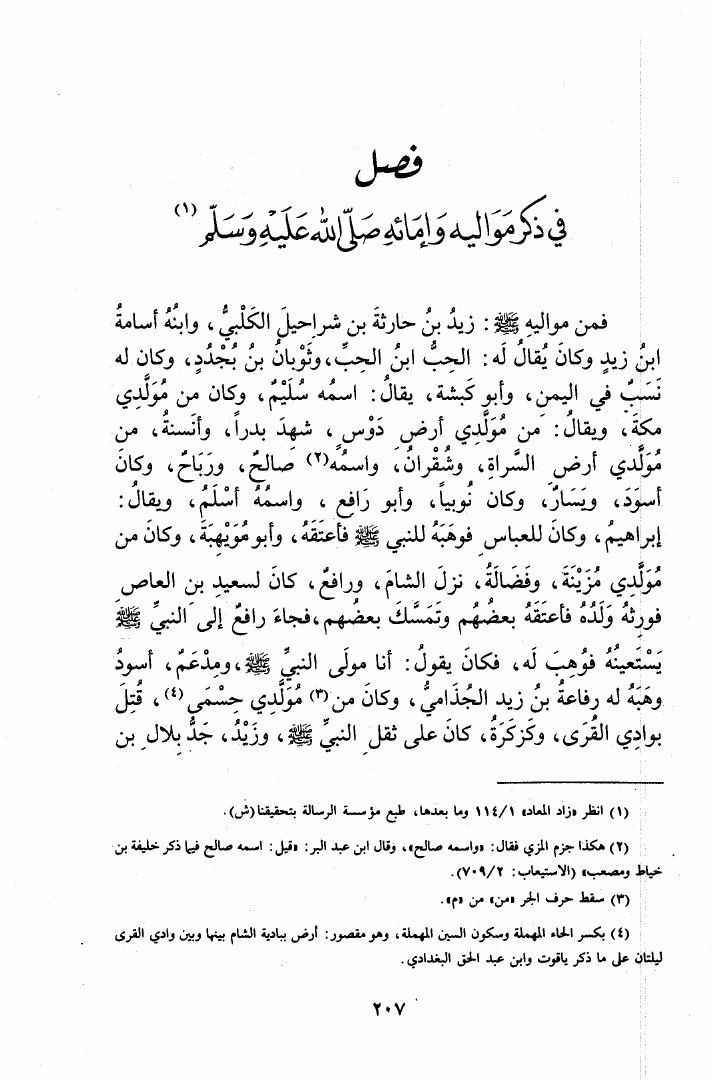 فصل
في ذكر مَوَاليه وَإمَائهِ صَلّى اللهُ عَلَيْهِ وَسَلّم (١)
فمن مواليهِ ﷺ: زيدُ بنُ حارثةَ بن شراحيلَ الكَلْبيُّ، وابنُهُ أسامةُ
ابنُ زيدٍ وكانَ يُقالُ لَه: الحِبُّ ابنُ الحِبِّ، وثَوْبانُ بنُ بُجْدُدٍ، وكان له
نَسَبٌ في اليمن، وأبو كَبشة، يقالُ: اسمُه سُلَيْمٌ، وكان من مُوَلَّدي
مكةَ، ويقالُ: من مُوَلَّدي أرضِ دَوْسٍ، شهدَ بدراً، وأنَسةُ، من
مُوَلَّدي أرضِ السَّراةِ، وشُقْرانُ، واسمُه(٢) صالحٌ، ورَبَاحٌ، وكانَ
أسوَدَ، ويَسَارٌ، وكان نُوبياً، وأبو رَافعٍ، واسمُهُ أسْلَمُ، ويقالُ:
إبراهيمُ، وكانَ للعباسِ فوهَبَهُ للنبي ﷺ فأعتَقَهُ، وأبو مُوَيْهبَةَ، وكانَ من
مُوَلَّدي مُزَيْنَةَ، وفَضَالَةُ، نزلَ الشامَ، ورافعٌ، كانَ لسعيدِ بنِ العاصِ
فورثهُ وَلَدُه فأعتَقَهُ بعضُهُم وتَمَسَّكَ بعضُهم، فجاءَ رافعٌ إلى النبيِّ ﷺ
يَسْتَعينُهُ فوُهِبَ لَه، فكانَ يقولُ: أنا مولَى النبيِّ ﷺ، ومِدْعَمٌ، أسودُ
وهَبَهُ له رفاعةُ بنُ زيد الجُذَاميُّ، وكانَ من(٣) مُوَلَّدي حِسْمَى(٤)، قُتِلَ
بوادِي القُرَى، وكَرْكَرَةُ، كانَ على ثقلِ النبيِّ ﷺ، وزَيْدُ، جَدُّ بِلالِ بن
(١) انظر «زاد المعاد» ١١٤/١ وما بعدها، طبع مؤسسة الرسالة بتحقيقنا (ش).
(٢) هكذا جزم المزي فقال: «واسمه صالح»، وقال ابن عبد البر: «قيل: اسمه صالح فيما ذكر خليفة بن
خياط ومصعب» (الاستيعاب: ٧٠٩/٢).
(٣) سقط حرف الجر «من» من «م».
(٤) بكسر الحاء المهملة وسكون السين المهملة، وهو مقصور: أرض ببادية الشام بينها وبين وادي القرى
ليلتان على ما ذكر ياقوت وابن عبد الحق البغدادي.
٢٠٧